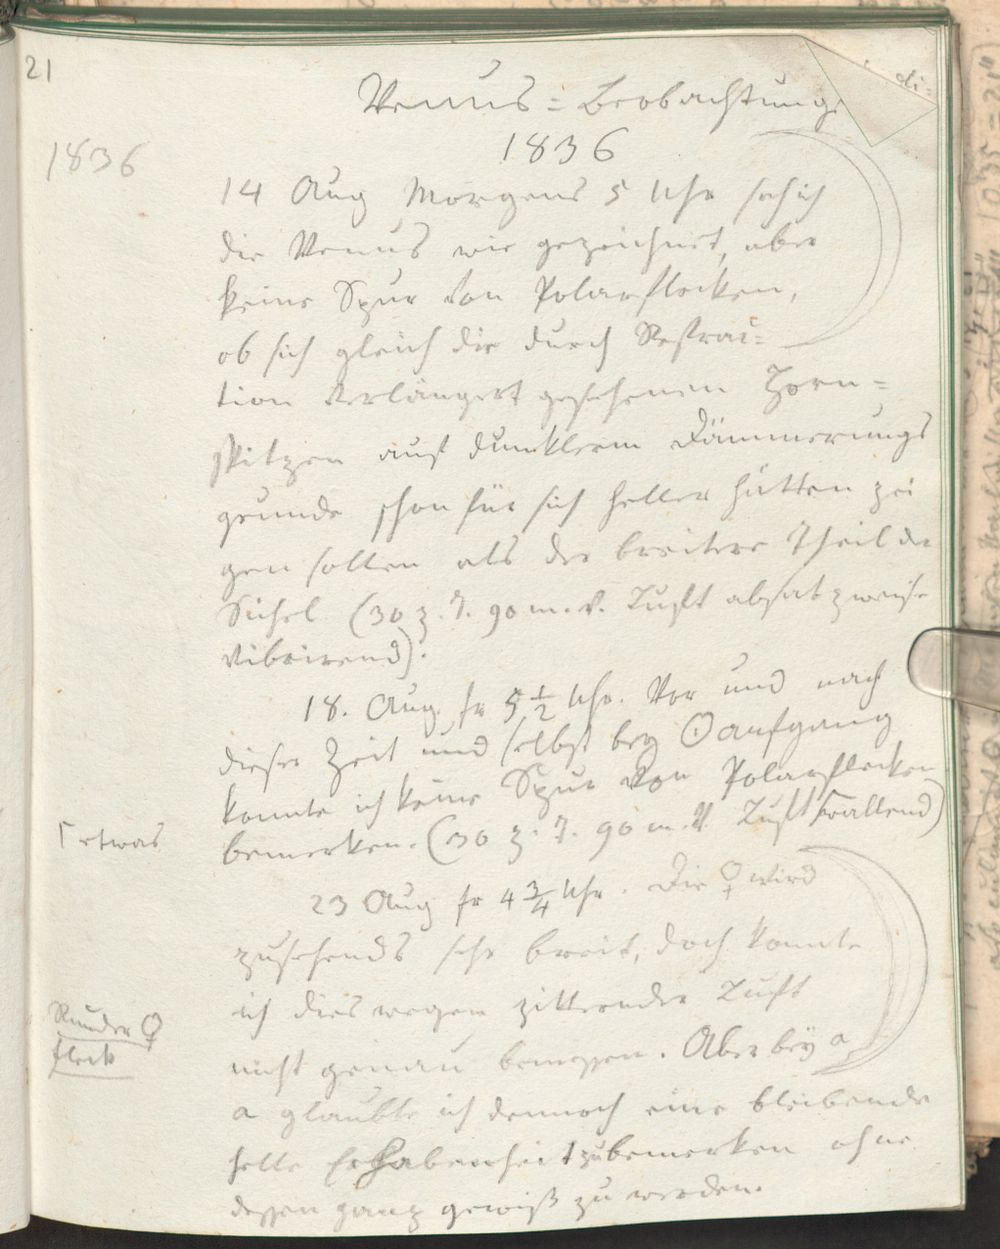 21
Venus-Beobachtung
1836
1836
14 Aug Morgens 5 Uhr sah ich
die Venus wie gezeichnet, aber
keine Spur von Polarflecken,
ob sich gleich die durch Refrac=
tion verlängert gesehenen Horn=
spitzen auf dunklerm Dämmerungs
grunde schon für sich heller hätten zei
gen sollen als der breitere Theil der
Sichel (30 z. F. 90 m. V. Luft absatzweise
vibrirend).
18. Aug. fr 5 1/2 Uhr. Vor und nach
dieser Zeit und selbst bey ☉aufgang
konnte ich keine Spur von Polarflecken
bemerken. (30 z. F. 90 m. V. Luft ⌈wallend)
⌈etwas
23 Aug fr 4 3/4 Uhr. Die ♀ wird
zusehends sehr breit, doch konnte
ich dies wegen zitternder Luft
nicht genau bemessen. Aber bey a
Runder ♀
fleck
a glaubte ich dennoch eine bleibende
helle Erhabenheit zu bemerken ohne
dessen ganz gewiß zu werden.